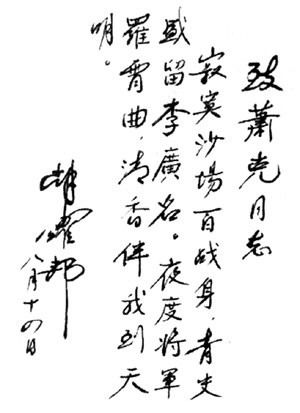 致蕭克同志
寂寞沙場百战身,青史
盛留李廣名。夜度將軍
羅霄曲,清香伴我到天
明。
胡耀邦
八月十四日